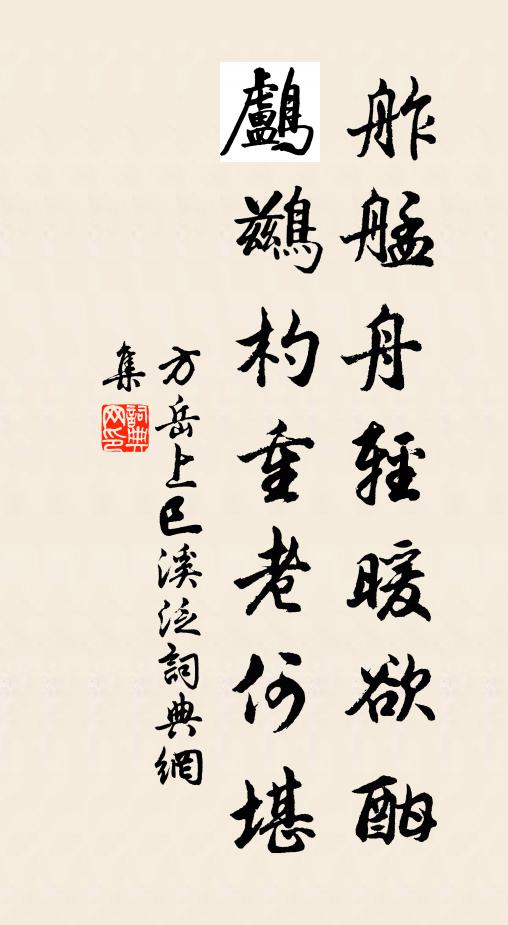 舴艋舟輕暖欲酣
鸕鷀杓重老何堪
方岳上巳溪泛詞典網
集
詞典網印